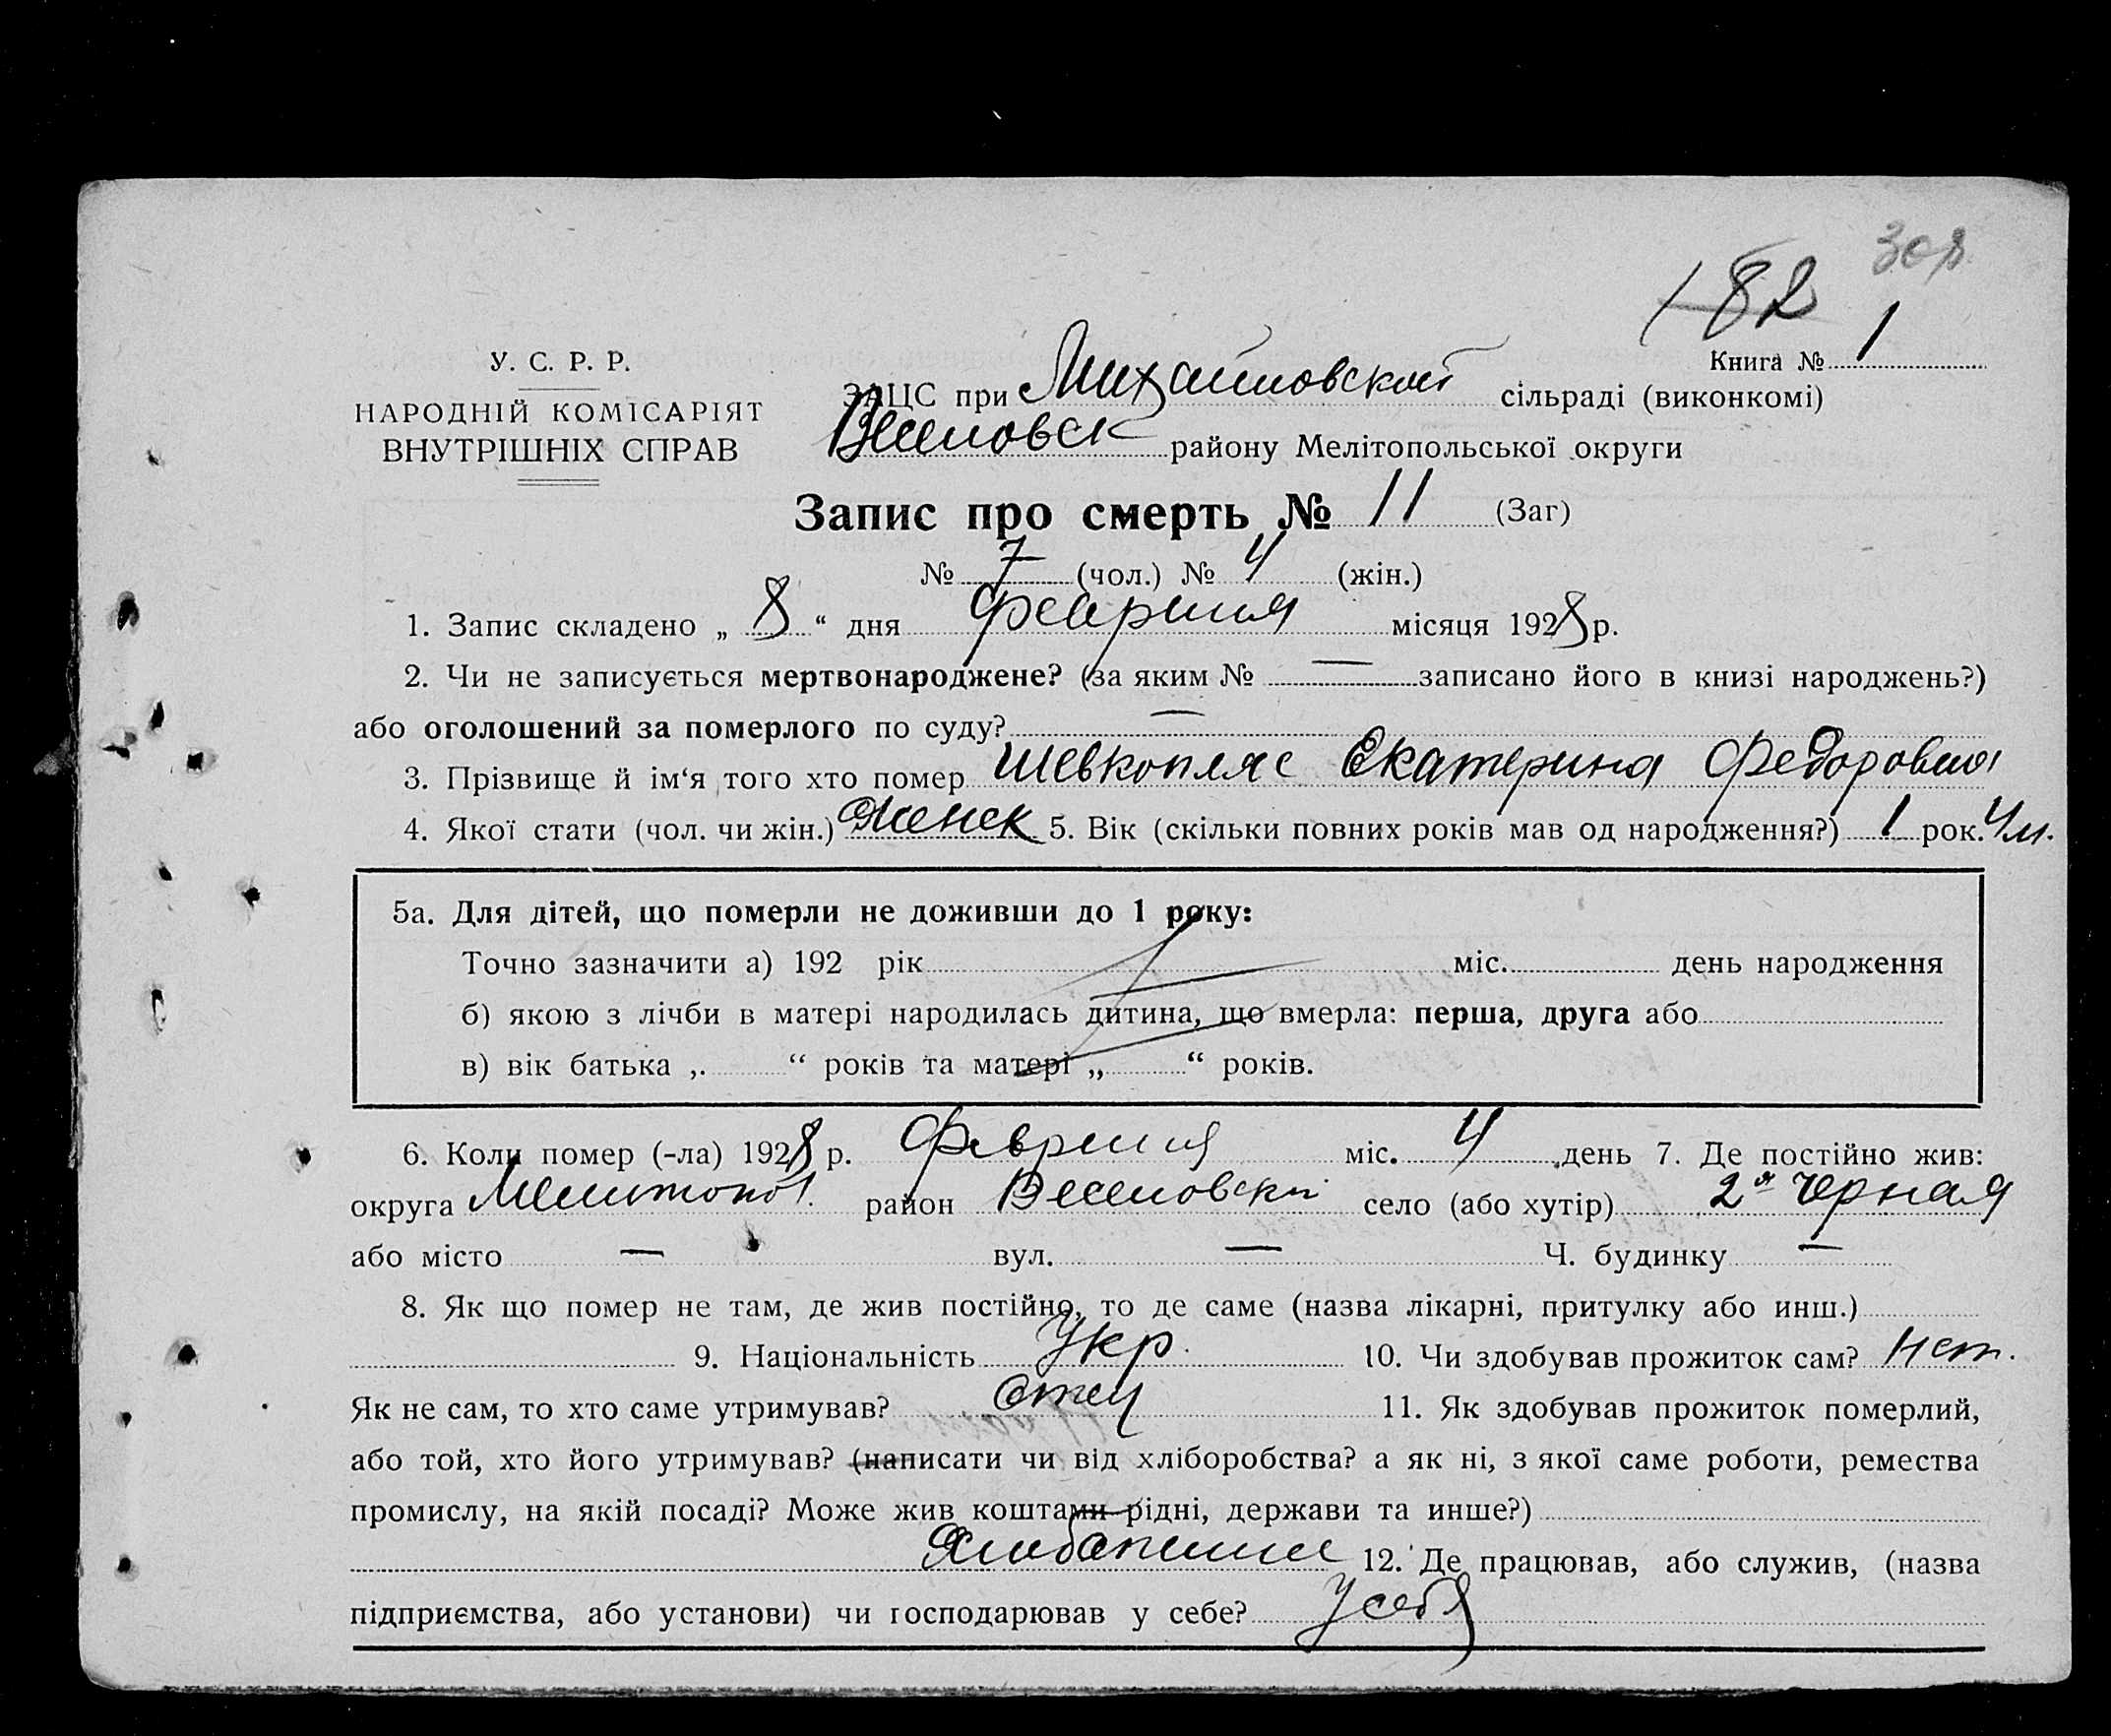 182
Книга № 1
У. С. Р. Р.
НАРОДНІЙ КОМІСАРІЯТ
ВНУТРІШНІХ СПРАВ
ЗАЦС при Михайловской сільраді (виконкомі)
Веселовск району Мелітопольської округи
Запис про смерть № 11 (Заг)
№ 7 (чол.) № 4 (жін.)
1. Запис складено „ 8 “ дня февраля місяця 1928 р.
2. Чи не записується мертвонароджене? (за яким № — записано його в книзі народжень?)
або оголошений за померлого по суду? —
3. Прізвище й ім‘я того хто помер Шевкопляс Екатерина Федоровна
4. Якої стати (чол. чи жін.) женск 5. Вік (скільки повних років мав од народження?) 1 рок. 4 м.
5а. Для дітей, що померли не доживши до 1 року:
Точно зазначити а) 192 рік міс. день народження
б) якою з лічби в матері народилась дитина, що вмерла: перша, друга або
в) вік батька „ “ років та матері „ “ років.
6. Коли помер (-ла) 1928 р. февраля міс. 4 день 7. Де постійно жив:
округа Мелитопол. район Веселовский село (або хутір) 2я Черная
або місто — вул. — Ч. будинку —
8. Як що помер не там, де жив постійно, то де саме (назва лікарні, притулку або инш.)
9. Національність Укр. 10. Чи здобував прожиток сам? нет.
Як не сам, то хто саме утримував? Отец 11. Як здобував прожиток померлий,
або той, хто його утримував? (написати чи від хліборобства? а як ні, з якої саме роботи, ремества
промислу, на якій посаді? Може жив коштами рідні, держави та инше?)
Хлебопашес 12. Де працював, або служив, (назва
підприємства, або установи) чи господарював у себе? У себя